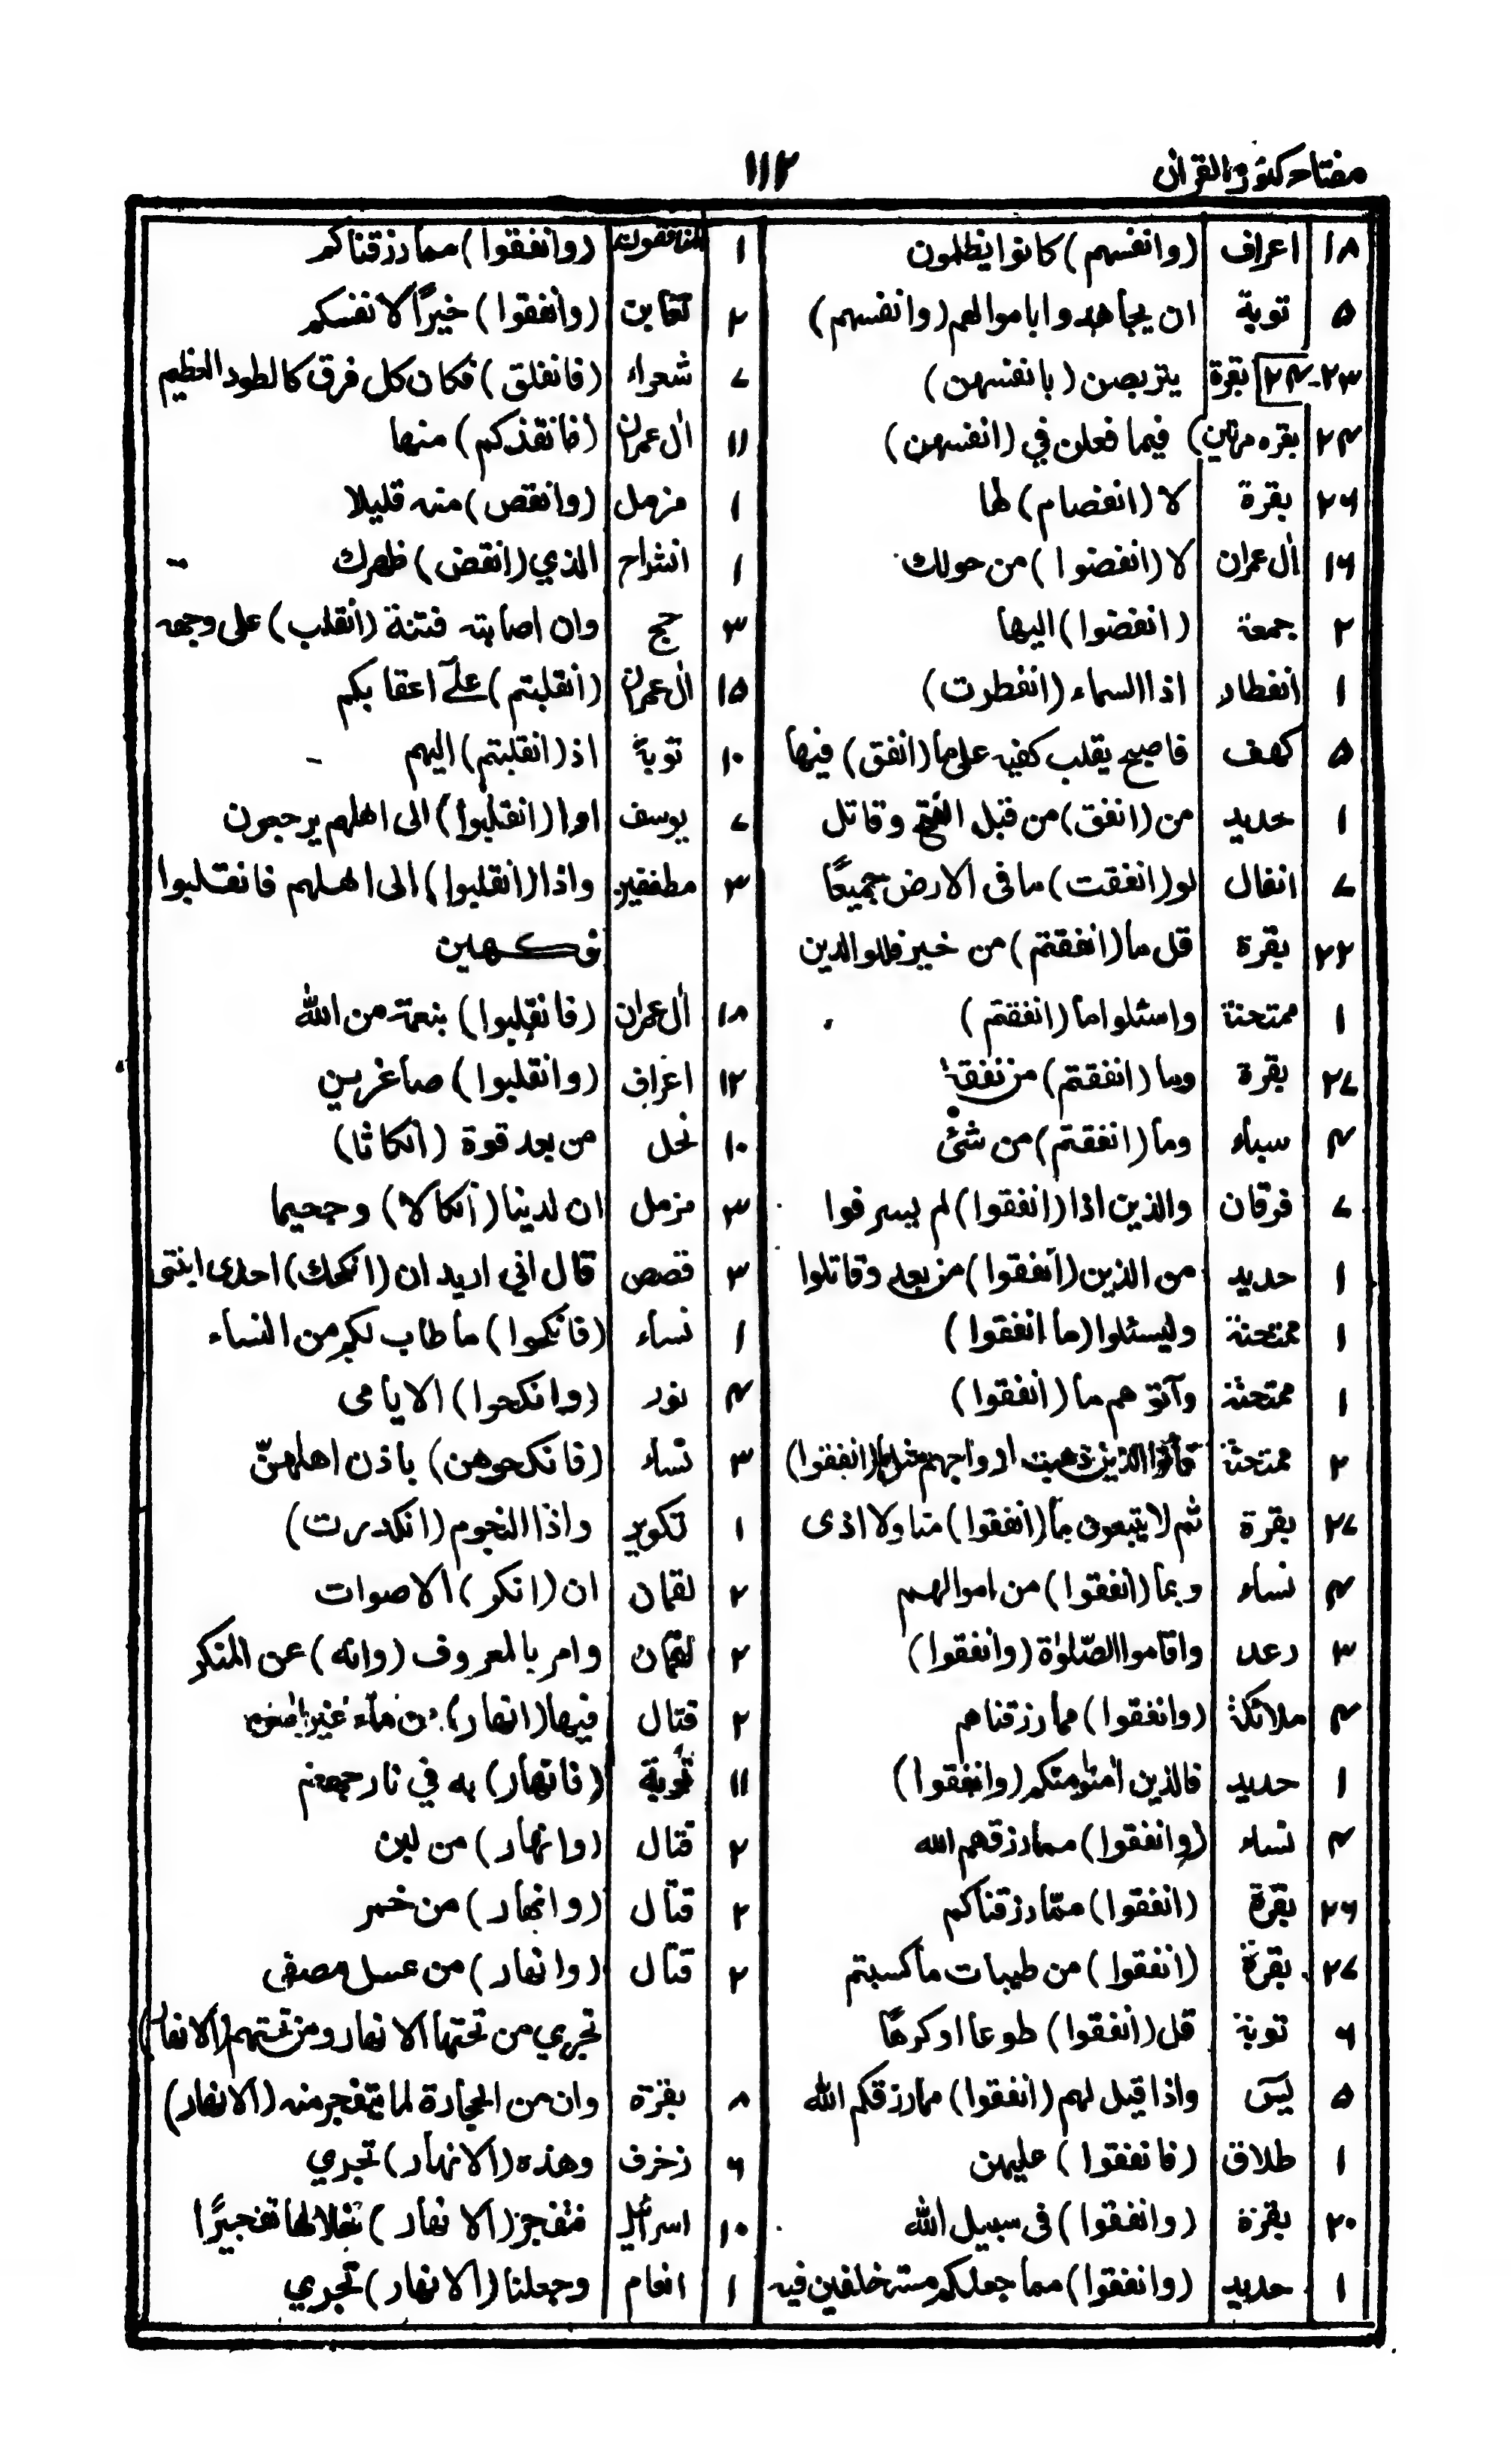 مفتاح كنوز القران
١١٢
١٨ اعراف (وانفسهم) كانوا يظلمون
٥ توبة ان يجاهدوا باموالهم (وانفسهم)
٢٣-٢٤ بقرة يتربصن (بانفسهن)
٢٤ بقره مرتين) فيما فعلن في (انفسهن)
٢٦ بقرة لا (انفصام) لها
١٦ اٰل عمران لا (انفضوا) من حولك
٢ جمعة (انفضوا) اليها
١ انفطار اذا السماء (انفطرت)
٥ كهف فاصبح يقلب كفيه على ما (انفق) فيها
١ حديد من (انفق) من قبل الفتح وقاتل
٧ انفال لو (انفقت) ما فى الارض جميعًا
٢٢ بقرة قل ما (انفقتم) من خير فللوالدين
١ ممتحنة واسئلوا ما (انفقتم)
٢٧ بقرة وما (انفقتم) من نفقة
٤ سباء وما (انفقتم) من شئ
٧ فرقان والذين اذا (انفقوا) لم يسرفوا
١ حديد من الذين (انفقوا) من بعد وقاتلوا
١ ممتحنة وليسئلوا (ما انفقوا)
١ ممتحنة وآتوهم ما (انفقوا)
٢ ممتحنة فآتوا الذين ذهبت ازواجهم مثل ما (انفقوا)
٢٧ بقرة ثم لا يتبعون ما (انفقوا) منا ولا اذى
٤ نساء وبما (انفقوا) من اموالهم
٣ رعد واقاموا الصّلوٰة (وانفقوا)
٤ ملائكة (وانفقوا) مما رزقناهم
١ حديد فالذين اٰمنوا منكم (وانفقوا)
٤ نساء (وانفقوا) مما رزقهم الله
٢٦ بقرة (انفقوا) ممّا رزقناكم
٢٧ بقرة (انفقوا) من طيبات ما كسبتم
٦ توبة قل (انفقوا) طوعا او كرهًا
٥ يٰسٓ واذا قيل لهم (انفقوا) مما رزقكم الله
١ طلاق (فانفقوا) عليهن
٢٠ بقرة (وانفقوا) فى سبيل الله
١ حديد (وانفقوا) مما جعلكم مستخلفين فيه
١ المنافقون (وانفقوا) مما رزقناكم
٢ تغابن (وانفقوا) خيرًا لانفسكم
٧ شعراء (فانفلق) فكان كل فرق كالطود العظيم
١١ اٰل عمران (فانقذكم) منها
١ مزمل (وانقص) منه قليلا
١ انشراح الذي (انقض) ظهرك
٣ حج وان اصابته فتنة (انقلب) على وجهه
١٥ اٰل عمران (انقلبتم) علٓى اعقابكم
١٠ توبة اذ (انقلبتم) اليهم
٧ يوسف اذا (انقلبوا) الى اهلهم يرجعون
٣ مطففين واذا (انقلبوا) الى اهلهم فانقلبوا
فكهين
١٨ اٰل عمران (فانقلبوا) بنعمة من الله
١٢ اعراف (وانقلبوا) صاغرين
١٠ نحل من بعد قوة (انكاثا)
٣ مزمل ان لدينا (انكالا) وجحيما
٣ قصص قال اني اريد ان (انكحك) احدى ابنتى
١ نساء (فانكحوا) ما طاب لكم من النساء
٤ نور (وانكحوا) الايامى
٣ نساء (فانكحوهن) باذن اهلهنّ
١ تكوير واذا النجوم (انكدرت)
٢ لقمان ان (انكر) الاصوات
٢ لقمان وامر بالمعروف (وانه) عن المنكر
٢ قتال فيها (انهار) من ماء غير اٰسن
١١ توبة (فانهار) به في نار جهنم
٢ قتال (وانهار) من لبن
٢ قتال (وانهار) من خمر
٢ قتال (وانهار) من عسل مصفى
تجري من تحتها الانهار ومن تحتهم (الانهار)
٨ بقرة وان من الحجارة لما يتفجر منه (الانهار)
٦ زخرف وهذه (الانهار) تجري
١٠ اسرائيل فتفجر (الانهار) خلالها تفجيرًا
١ انعام وجعلنا (الانهار) تجري